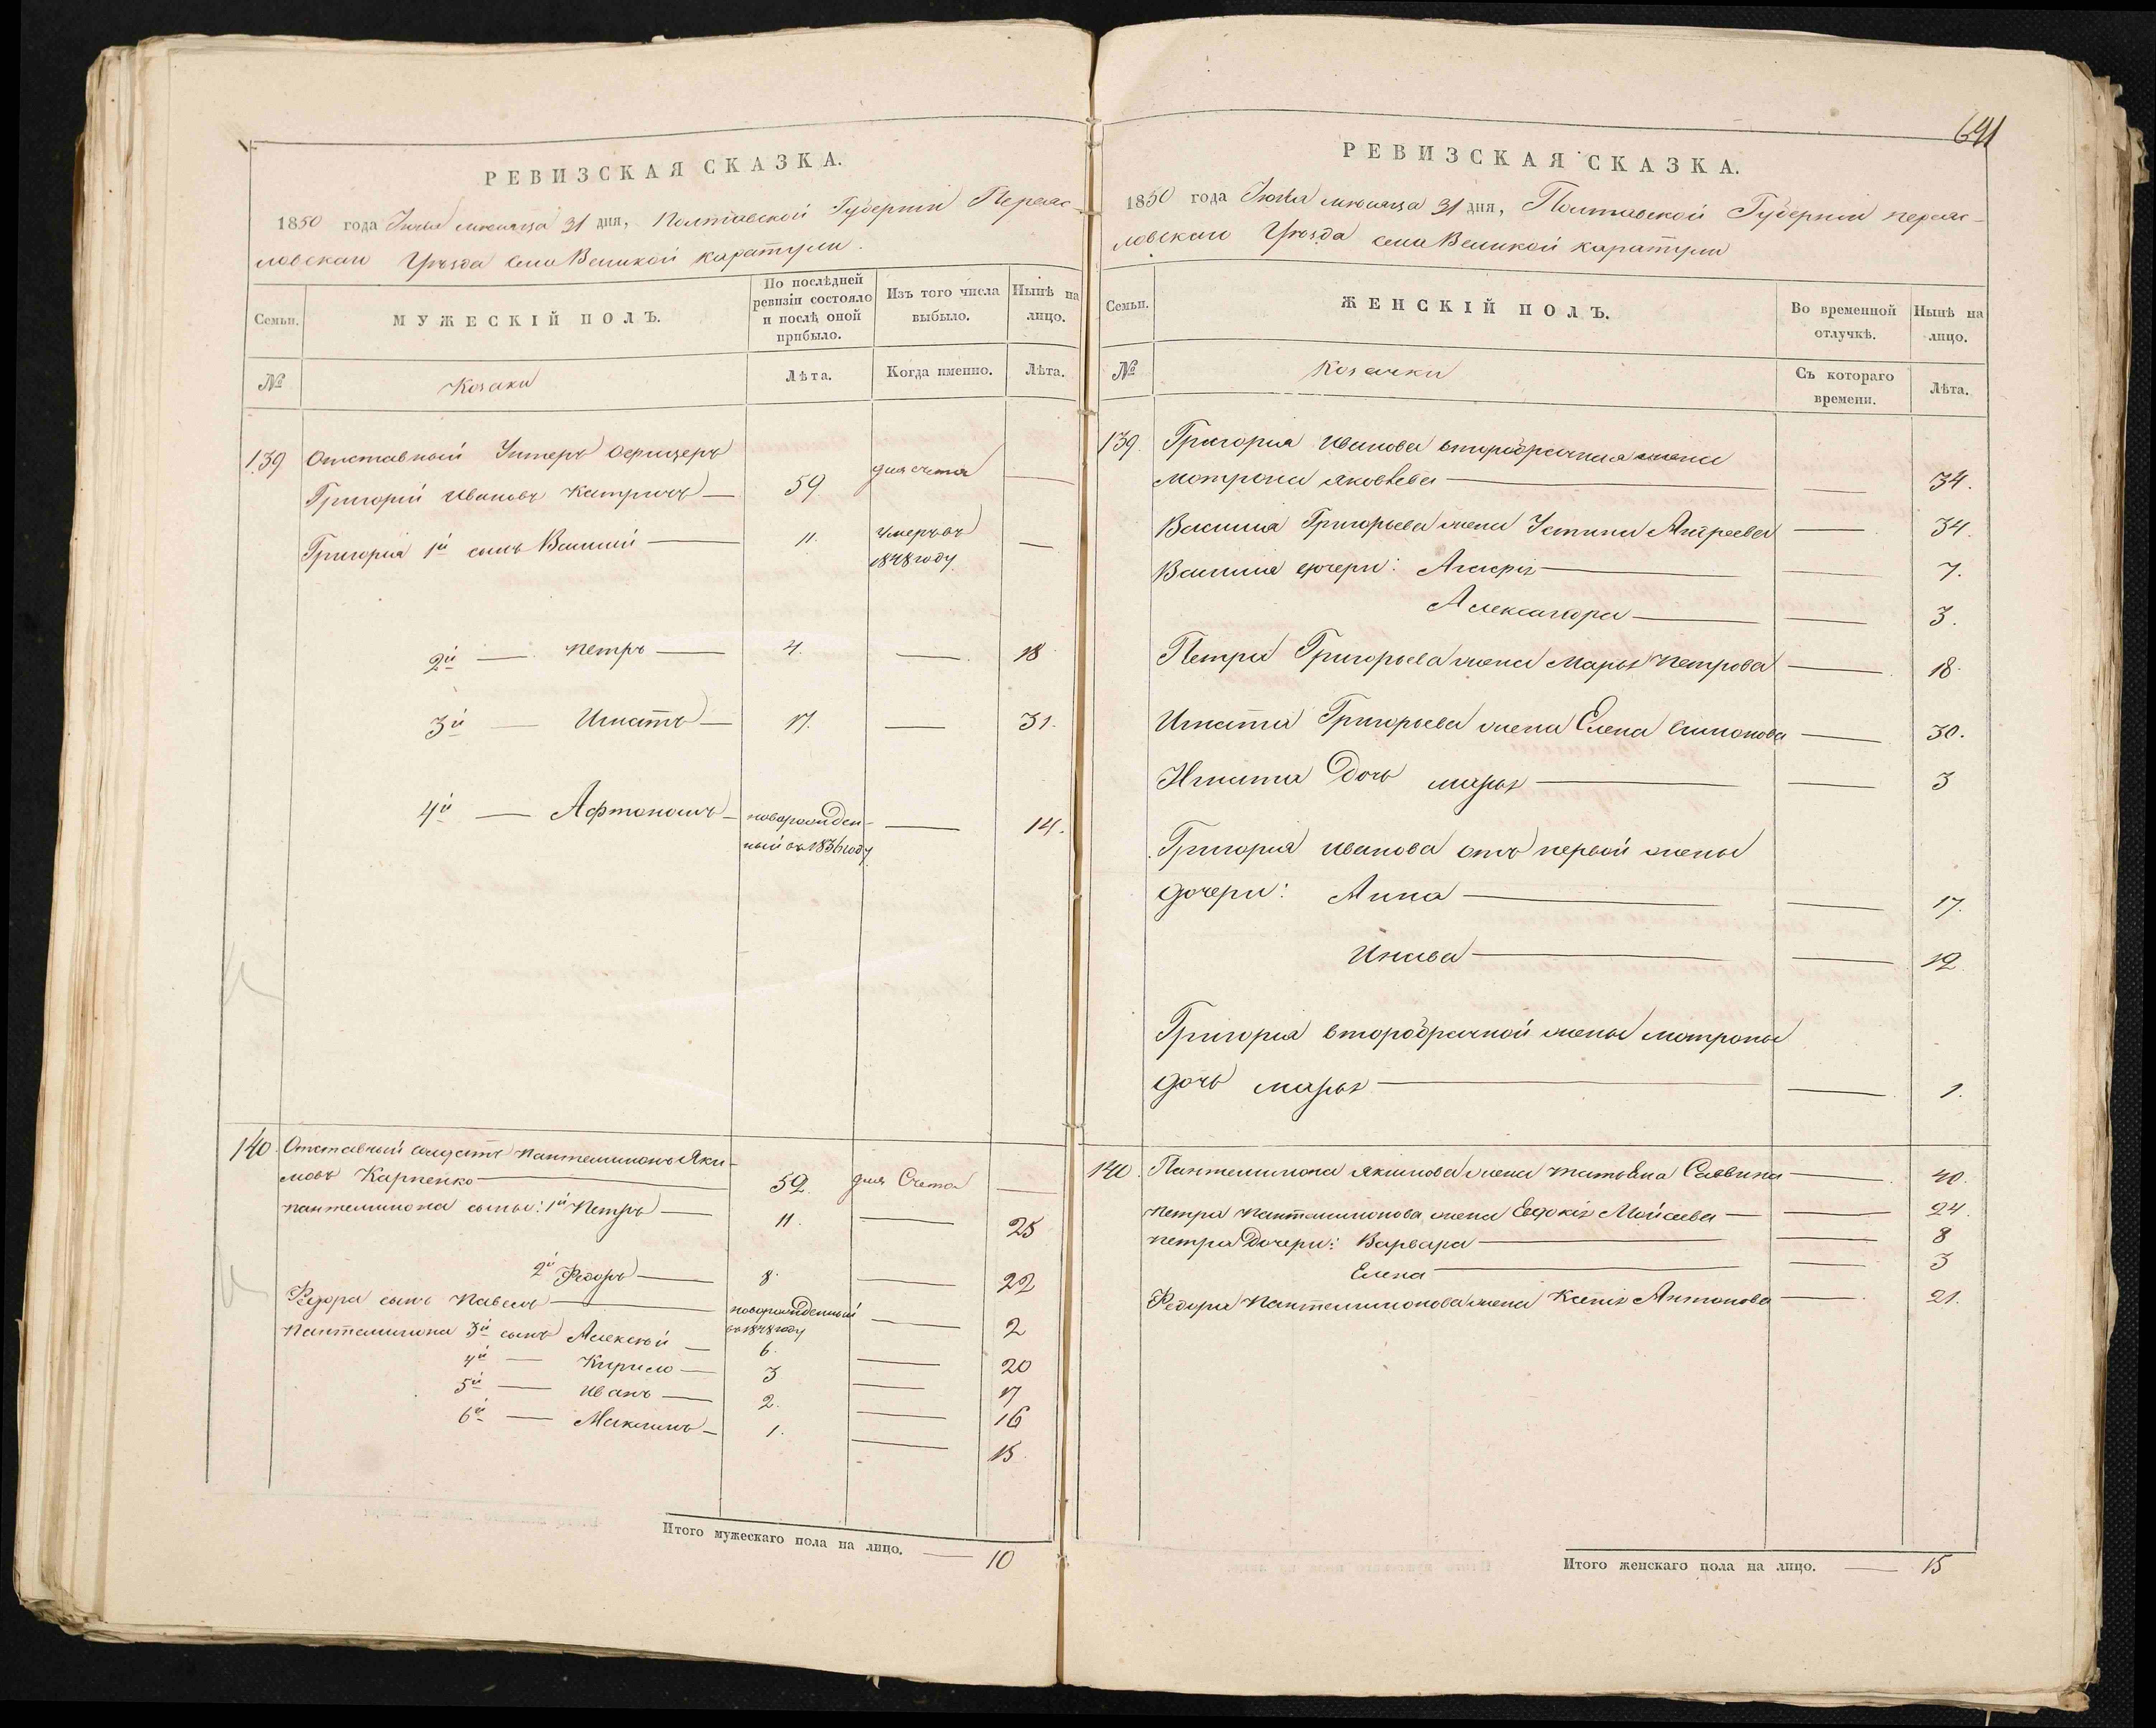 РЕВИЗСКАЯ СКАЗКА.
1850 года Іюля мѣсяца 31 дня, Полтавской Губерніи Переяс-
ловскаго Уѣзда села Великой каратули.
Семьи.
МУЖЕСКІЙ ПОЛЪ.
По послѣдней ревизіи состояло и послѣ оной прибыло.
Изъ того числа выбыло.
Нынѣ на лицо.
№
Козаки
Лѣта.
Когда именно.
Лѣта.
139 Отставный Унтеръ Офицеръ
Григорій Ивановъ Катричъ — 59 для счета —
Григорія 1й сынъ Василій — 11. Умеръ въ 1848 году —
2й — Петръ — 4. — 18
3й — Игнатъ — 17. — 31.
4й — Афтономъ — новорожден-
ный въ 1836 году — 14.
140. Отставный солдатъ Пантелимонъ Яки-
мовъ Карпенко — 52. для Счета —
Пантелимона сыны: 1й Петръ — 11. — 25
2й Федоръ — 8. — 22
Федора сынъ Павелъ — новорожденный въ 1848 году — 2
Пантелимона 3й сынъ Алексѣй — 6. — 20
4й — Кирило — 3 — 17
5й — Иванъ — 2. — 16
6й — Максимъ — 1. — 15.
Итого мужескаго пола на лицо. — 10
641
РЕВИЗСКАЯ СКАЗКА.
1850 года Іюля мѣсяца 31 дня, Полтавской Губерніи переяс-
ловскаго Уѣзда села Великой каратули
Семьи.
ЖЕНСКІЙ ПОЛЪ.
Во временной отлучкѣ.
Нынѣ на лицо.
№
Козачки
Съ котораго времени.
Лѣта.
139. Григорія Иванова второбрачная жена
Мотрона Яковлева — — 34.
Василія Григорьева жена Устина Андреева — 34.
Василія дочери: — — 7.
Александра — — 3.
Петра Григорьева жена Марья Петрова — 18.
Игната Григорьева жена Елена Симонова — 30.
Игната Дочь марья — — 3
Григорія Иванова отъ первой жены
дочери: Анна — — 17.
— — 12.
Григорія второбрачной жены Мотроны
дочь марья — — 1.
140. Пантелимона Якимова жена Татьяна Саввина — 40.
Петра Пантелимонова жена Евдокія Мойсеева — — 24.
Петра Дочери: Варвара — — 8
Елена — — 3
Федора Пантелимонова жена Ксенія Антонова — 21.
Итого женскаго пола на лицо. — 15